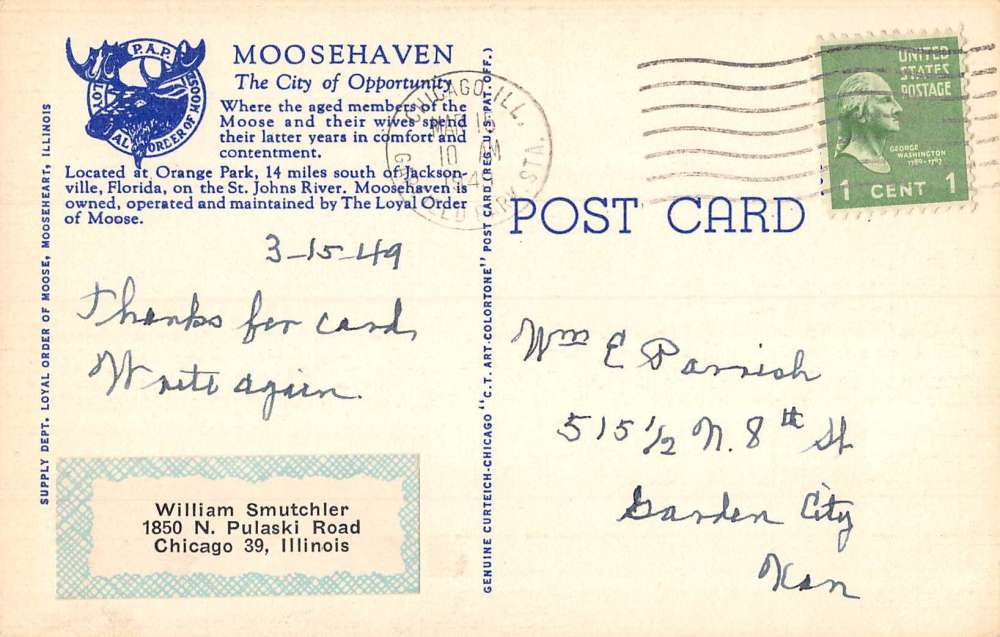 P.A.P.
LOYAL ORDER OF MOOSE
MOOSEHAVEN
The City of Opportunity
Where the aged members of the
Moose and their wives spend
their latter years in comfort and
contentment.
Located at Orange Park, 14 miles south of Jackson-
ville, Florida, on the St. Johns River. Moosehaven is
owned, operated and maintained by The Loyal Order
of Moose.
SUPPLY DEPT. LOYAL ORDER OF MOOSE, MOOSEHEART, ILLINOIS
3-15-49
Thanks for card,
Write again.
William Smutchler
1850 N. Pulaski Road
Chicago 39, Illinois
GENUINE CURTEICH-CHICAGO "C.T. ART-COLORTONE" POST CARD (REG. U.S. PAT. OFF.)
CHICAGO, ILL.
MAR 15
10 AM
1949
GARFIELD PARK STA.
UNITED
STATES
POSTAGE
GEORGE
WASHINGTON
1789-1797
1 CENT 1
POST CARD
Wm E Parrish
515 1/2 N. 8th St
Garden City
Kan